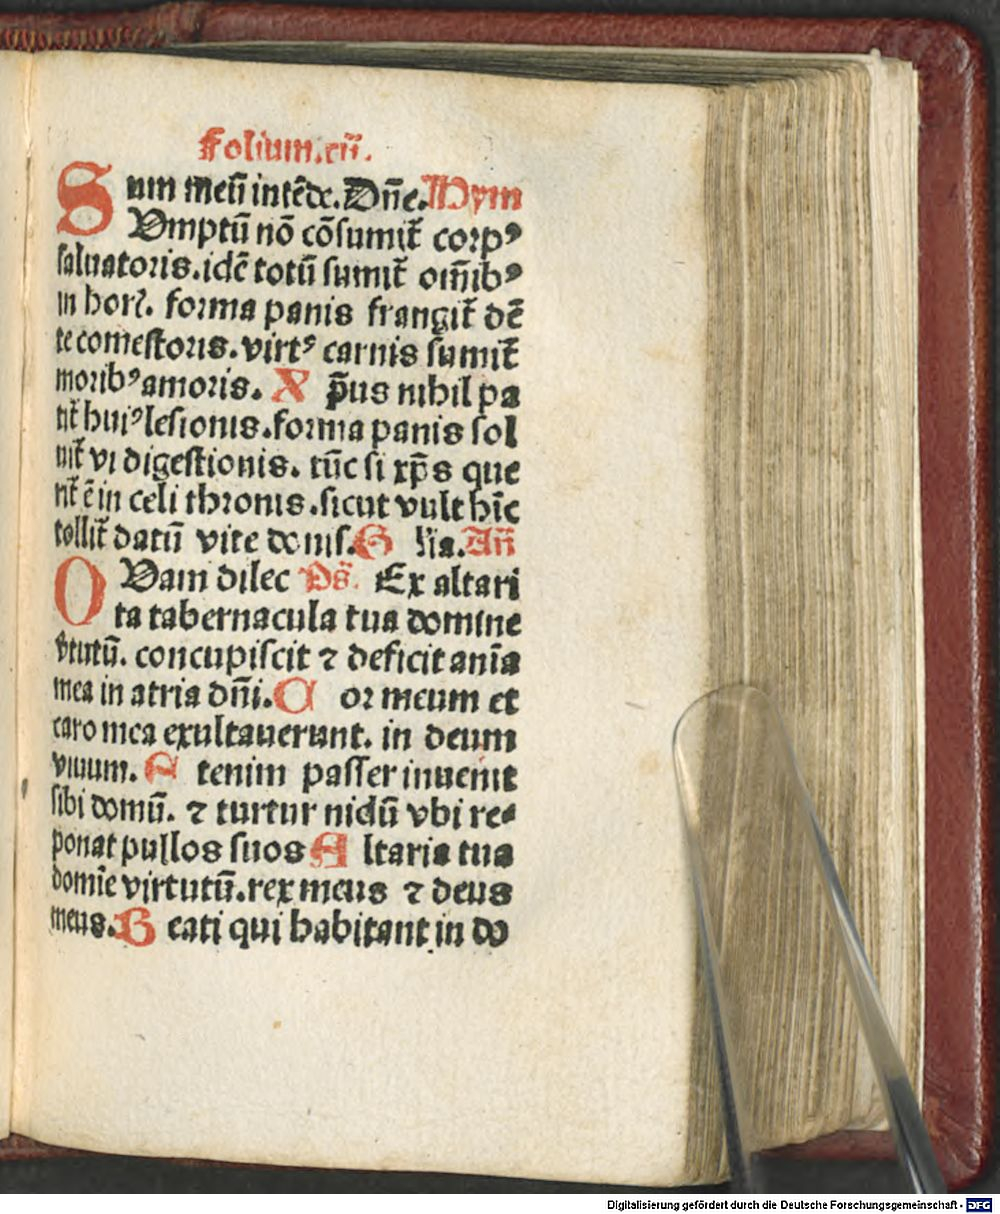 Folium.cii.
um meū intēde. Dñe. Hym
Sumptū nō cōsumit̄ corpꝰ
saluatoris. idē totū sumit̄ om̄ibꝰ
in horꝭ. forma panis frangit̄ dē
te comestoris. virtꝰ carnis sumit̄
moribꝰ amoris. X p̄us nihil pa
tit̄ huiꝰ lesionis. forma panis sol
uit̄ vi digestionis. tūc si xp̄s que
rit̄ ē in celi thronis. sicut vult hīc
tollit̄ datū vite donis. G lia. Añ
Quam dilec Ps. Ex altari
ta tabernacula tua domine
v̄tutū. concupiscit ⁊ deficit anīa
mea in atria dñi. C or meum et
caro mea exultauerunt. in deum
viuum. E tenim passer inuenit
sibi domū. ⁊ turtur nidū vbi re⸗
ponat pullos suos A ltaria tua
domīe virtutū. rex meus ⁊ deus
meus. B eati qui habitant in do
Digitalisierung gefördert durch die Deutsche Forschungsgemeinschaft - DFG